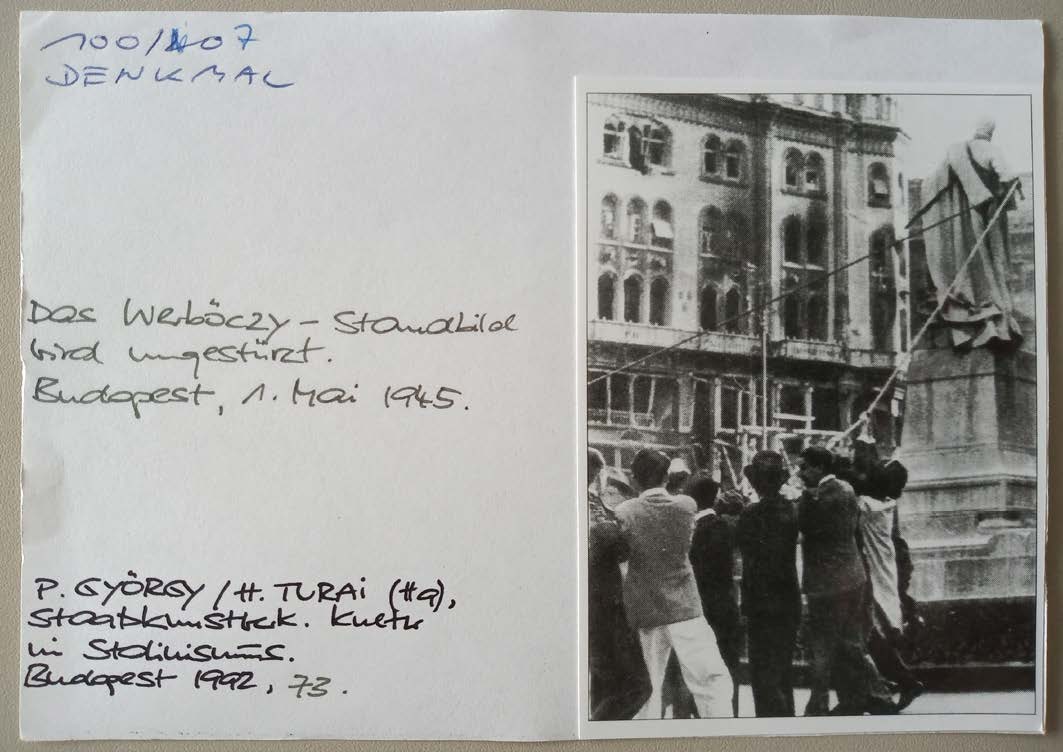 100/107
DENKMAL
Das Werböczy - Standbild
wird umgestürzt.
Budapest, 1. Mai 1945.
P. GYÖRGY / H. TURAI (Hg),
Staatskunstwerk. Kultur
im Stalinismus.
Budapest 1992, 73.